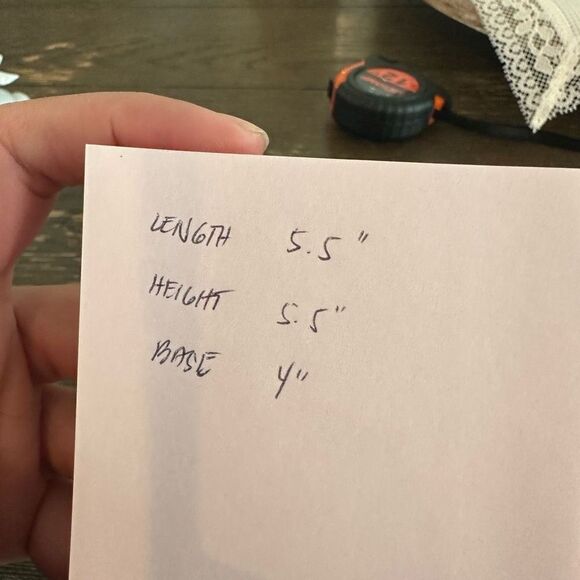 LENGTH 5.5"
HEIGHT 5.5"
BASE 4"
12'